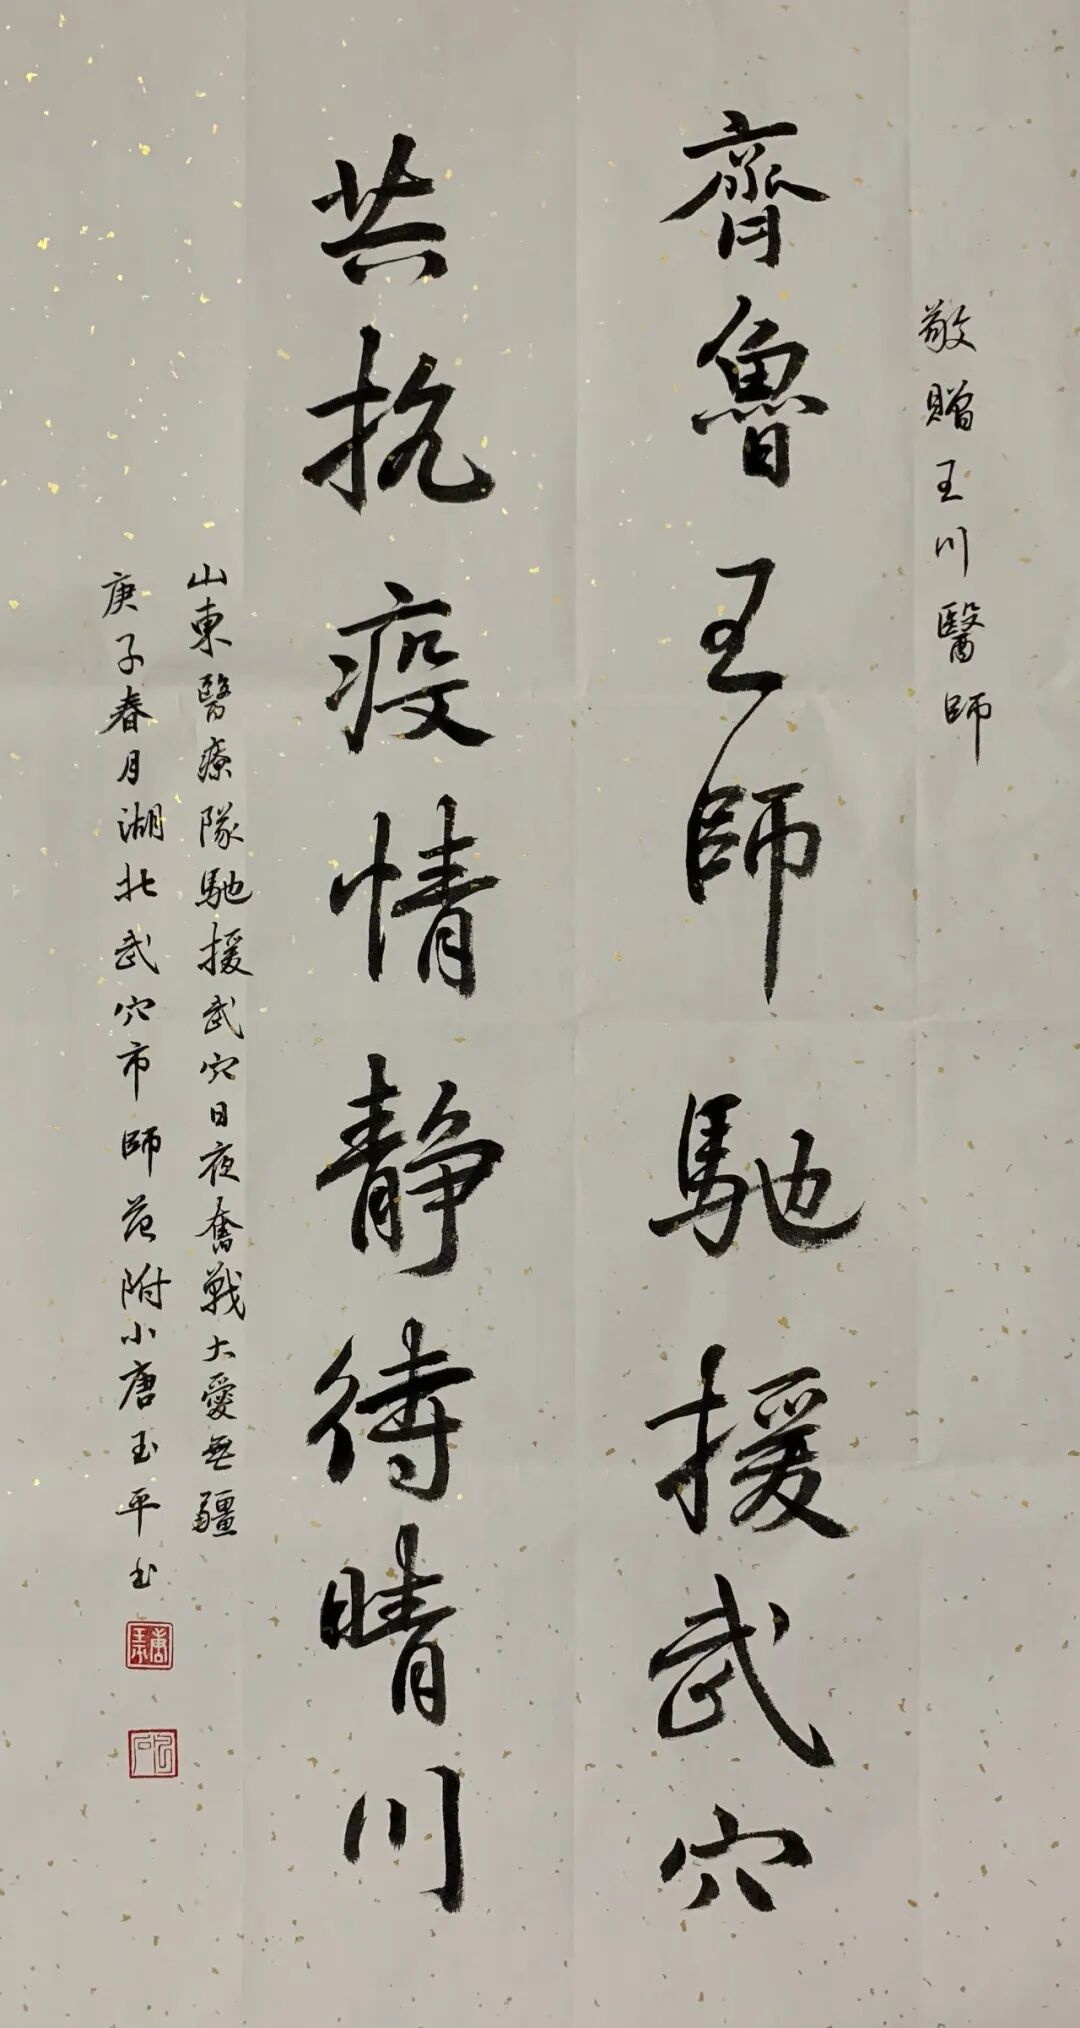 敬贈王川醫師
齊魯王師馳援武穴
共抗疫情靜待晴川
山東醫療隊馳援武穴日夜奮戰大愛無疆
庚子春月湖北武穴市師范附小唐玉平书